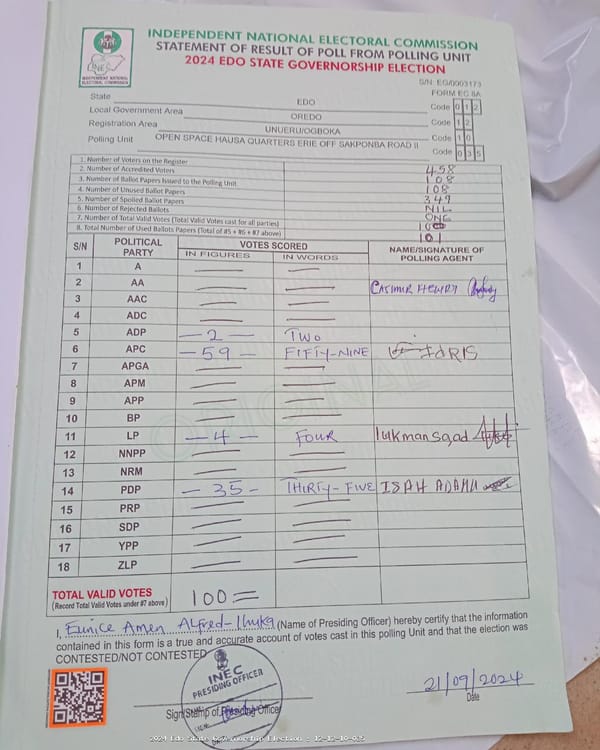 INDEPENDENT NATIONAL ELECTORAL COMMISSION
STATEMENT OF RESULT OF POLL FROM POLLING UNIT
2024 EDO STATE GOVERNORSHIP ELECTION
INEC
INDEPENDENT NATIONAL ELECTORAL COMMISSION
S/N: EG/0003173
FORM EC 8A
State EDO Code 0 1 2
Local Government Area OREDO Code 1 2
Registration Area UNUERU/OGBOKA Code 1 0
Polling Unit OPEN SPACE HAUSA QUARTERS ERIE OFF SAKPONBA ROAD II Code 0 3 5
1. Number of Voters on the Register 458
2. Number of Accredited Voters 108
3. Number of Ballot Papers Issued to the Polling Unit
4. Number of Unused Ballot Papers
5. Number of Spoiled Ballot Papers
6. Number of Rejected Ballots
7. Number of Total Valid Votes (Total Valid Votes cast for all parties)
8. Total Number of Used Ballots Papers (Total of #5 + #6 + #7 above) 101
S/N POLITICAL PARTY VOTES SCORED NAME/SIGNATURE OF POLLING AGENT
IN FIGURES IN WORDS
1 A
2 AA CASIMIR HENRY
3 AAC
4 ADC
5 ADP - 2 - TWO
6 APC - 59 - FIFTY-NINE IDRIS
7 APGA
8 APM
9 APP
10 BP
11 LP - 4 - FOUR lukman sa,ad
12 NNPP
13 NRM
14 PDP - 35 - THIRTY-FIVE ISAH ADAMU
15 PRP
16 SDP
17 YPP
18 ZLP
TOTAL VALID VOTES 100=
(Record Total Valid Votes under #7 above)
I, Eunice Amen Alfred-Ihuka (Name of Presiding Officer) hereby certify that the information
contained in this form is a true and accurate account of votes cast in this polling Unit and that the election was
CONTESTED/NOT CONTESTED
INEC
PRESIDING OFFICER
21/09/2024
Sign/Stamp of Presiding Officer Date
2024 Edo State Governorship Election - 12-12-10-035